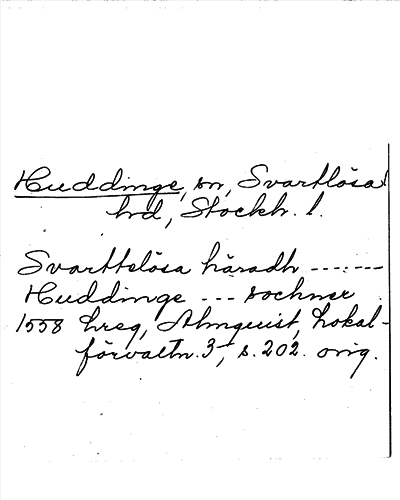 Huddinge, sn, Svartlösa
hrd, Stockh. l.
Svarttelösa häradh -------
Huddinge --- sochner
1558 hreg, Almquist, Lokal-
förvaltn. 3, s. 202. orig.